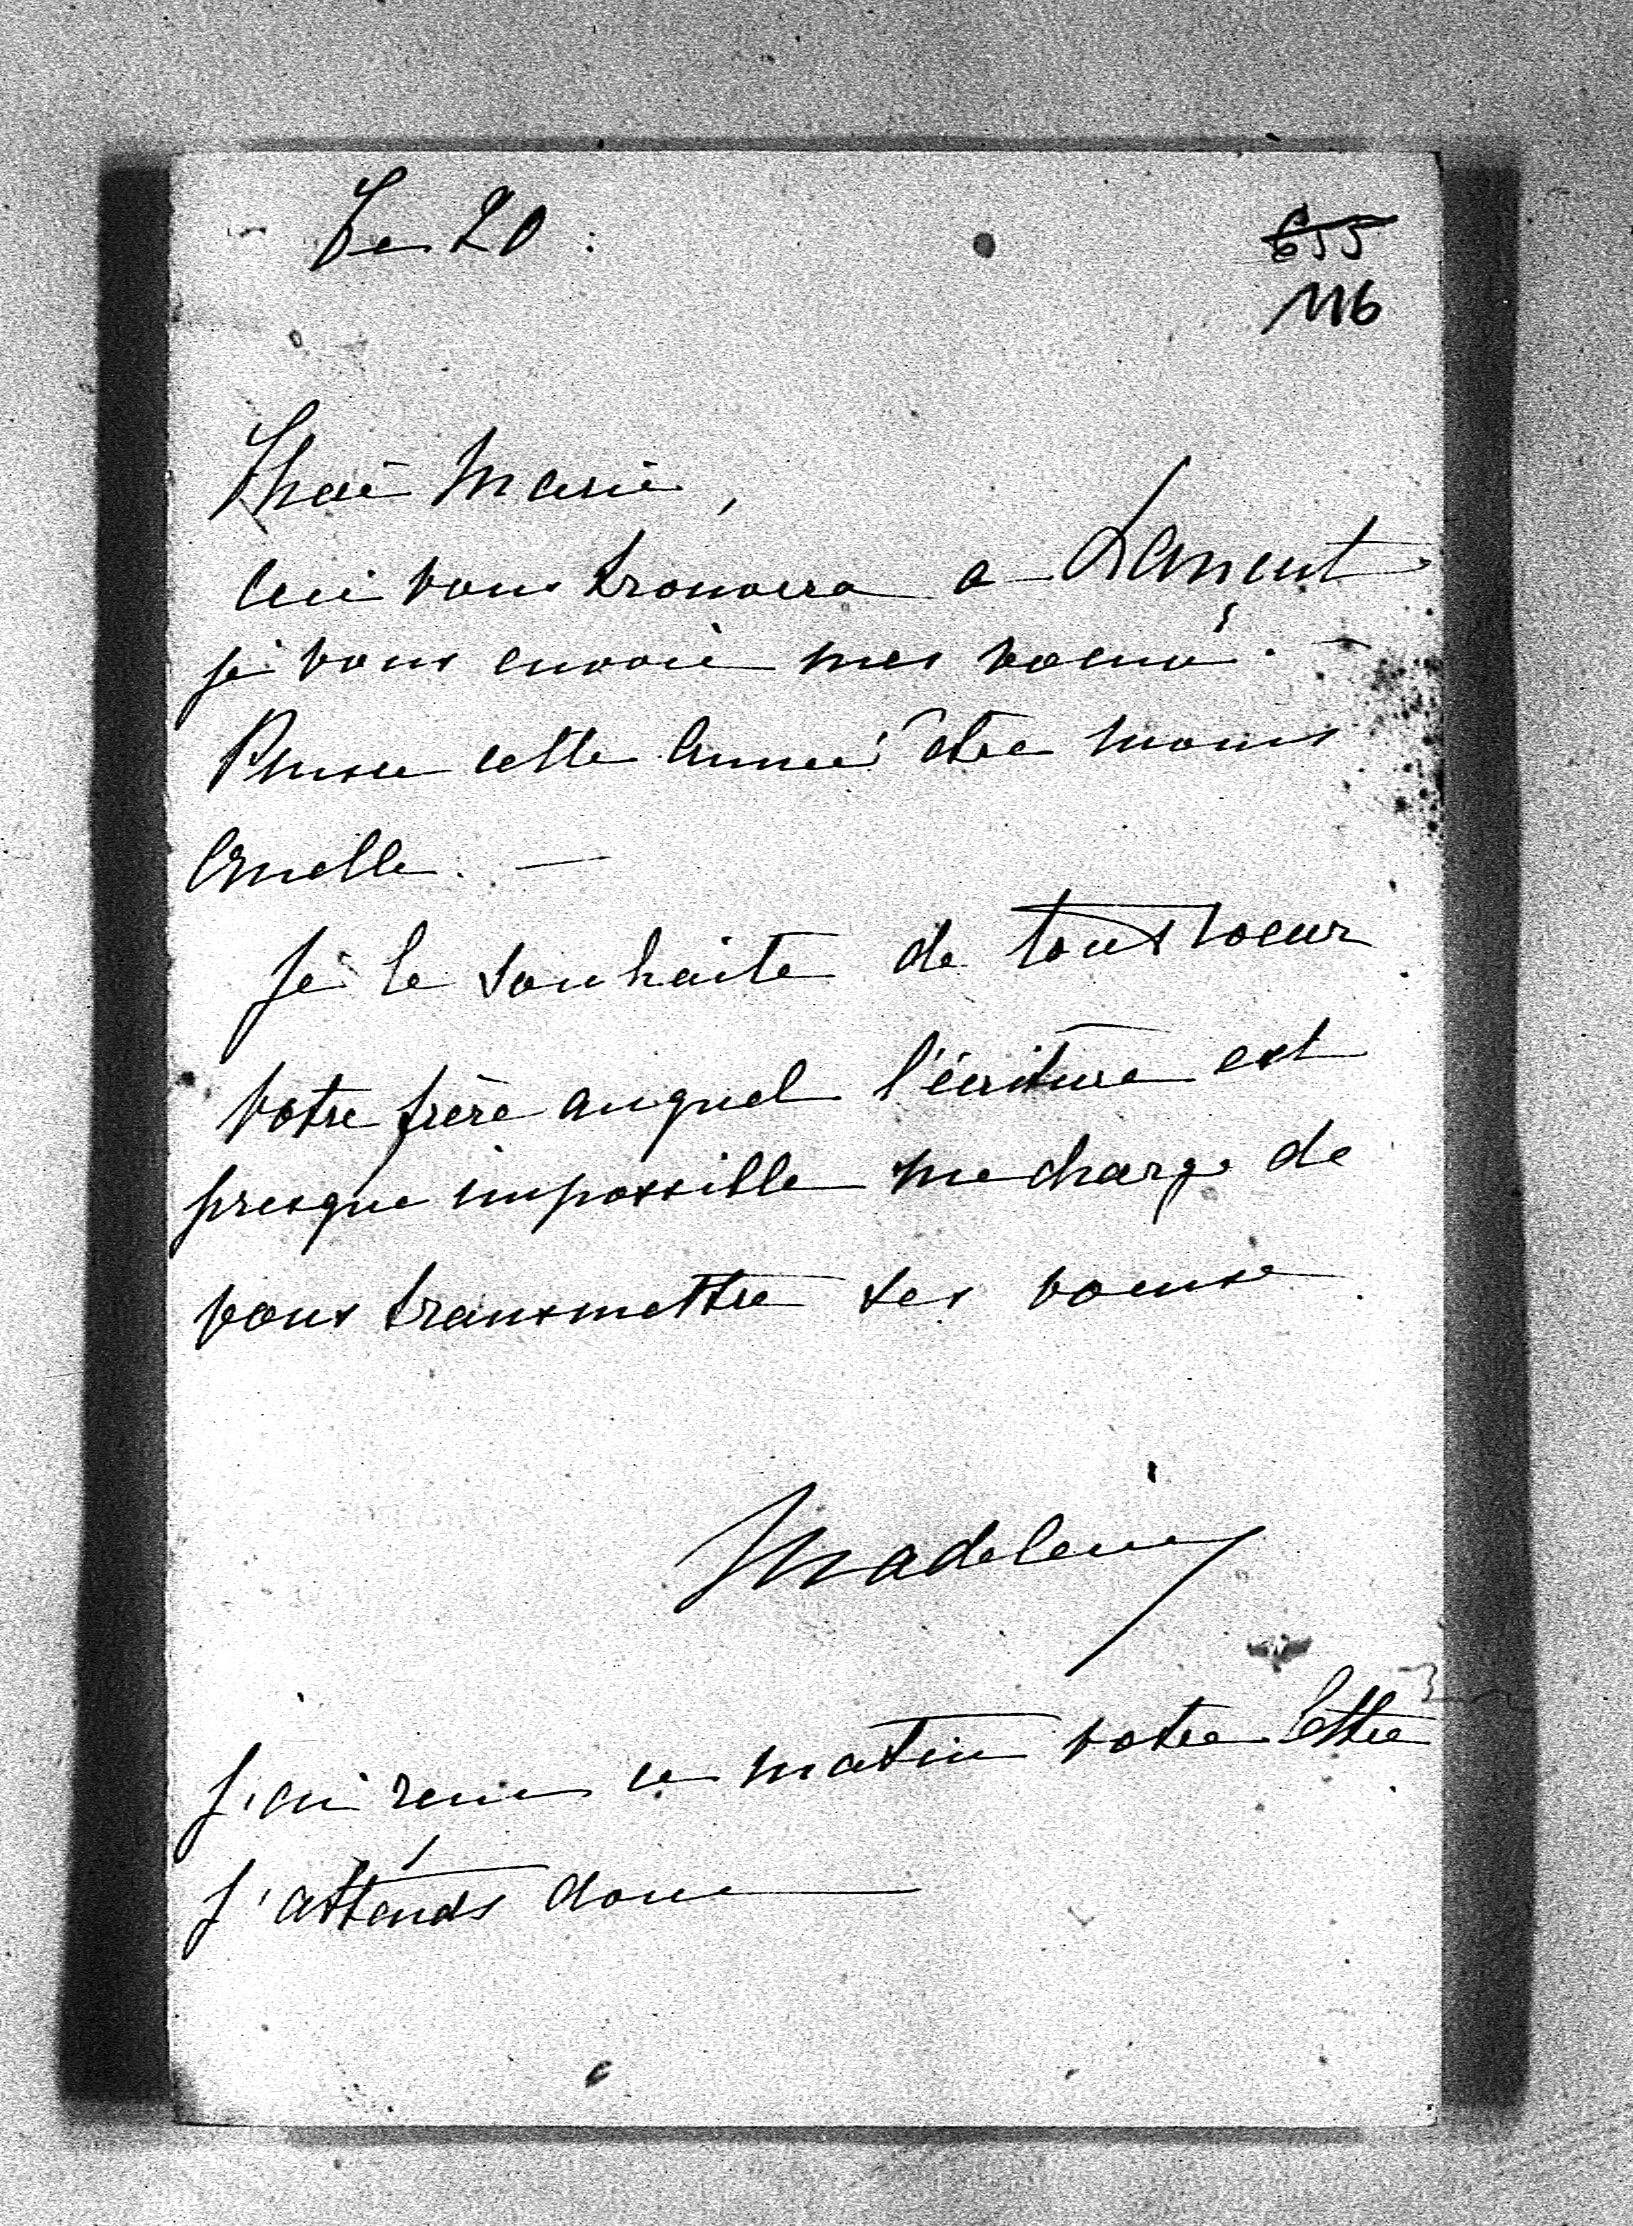 Le 20.
655
116
Chère Marie,
Ceci vous trouvera a Lancut
je vous envoie mes voeux.
Puisse cette année être moins
cruelle. —
Je le souhaite de tout coeur
Votre frère auquel l'écriture est
presque impossible me charge de
vous transmettre ses voeux
Madeleine
J'ai reçu ce matin votre lettre
J'attends donc